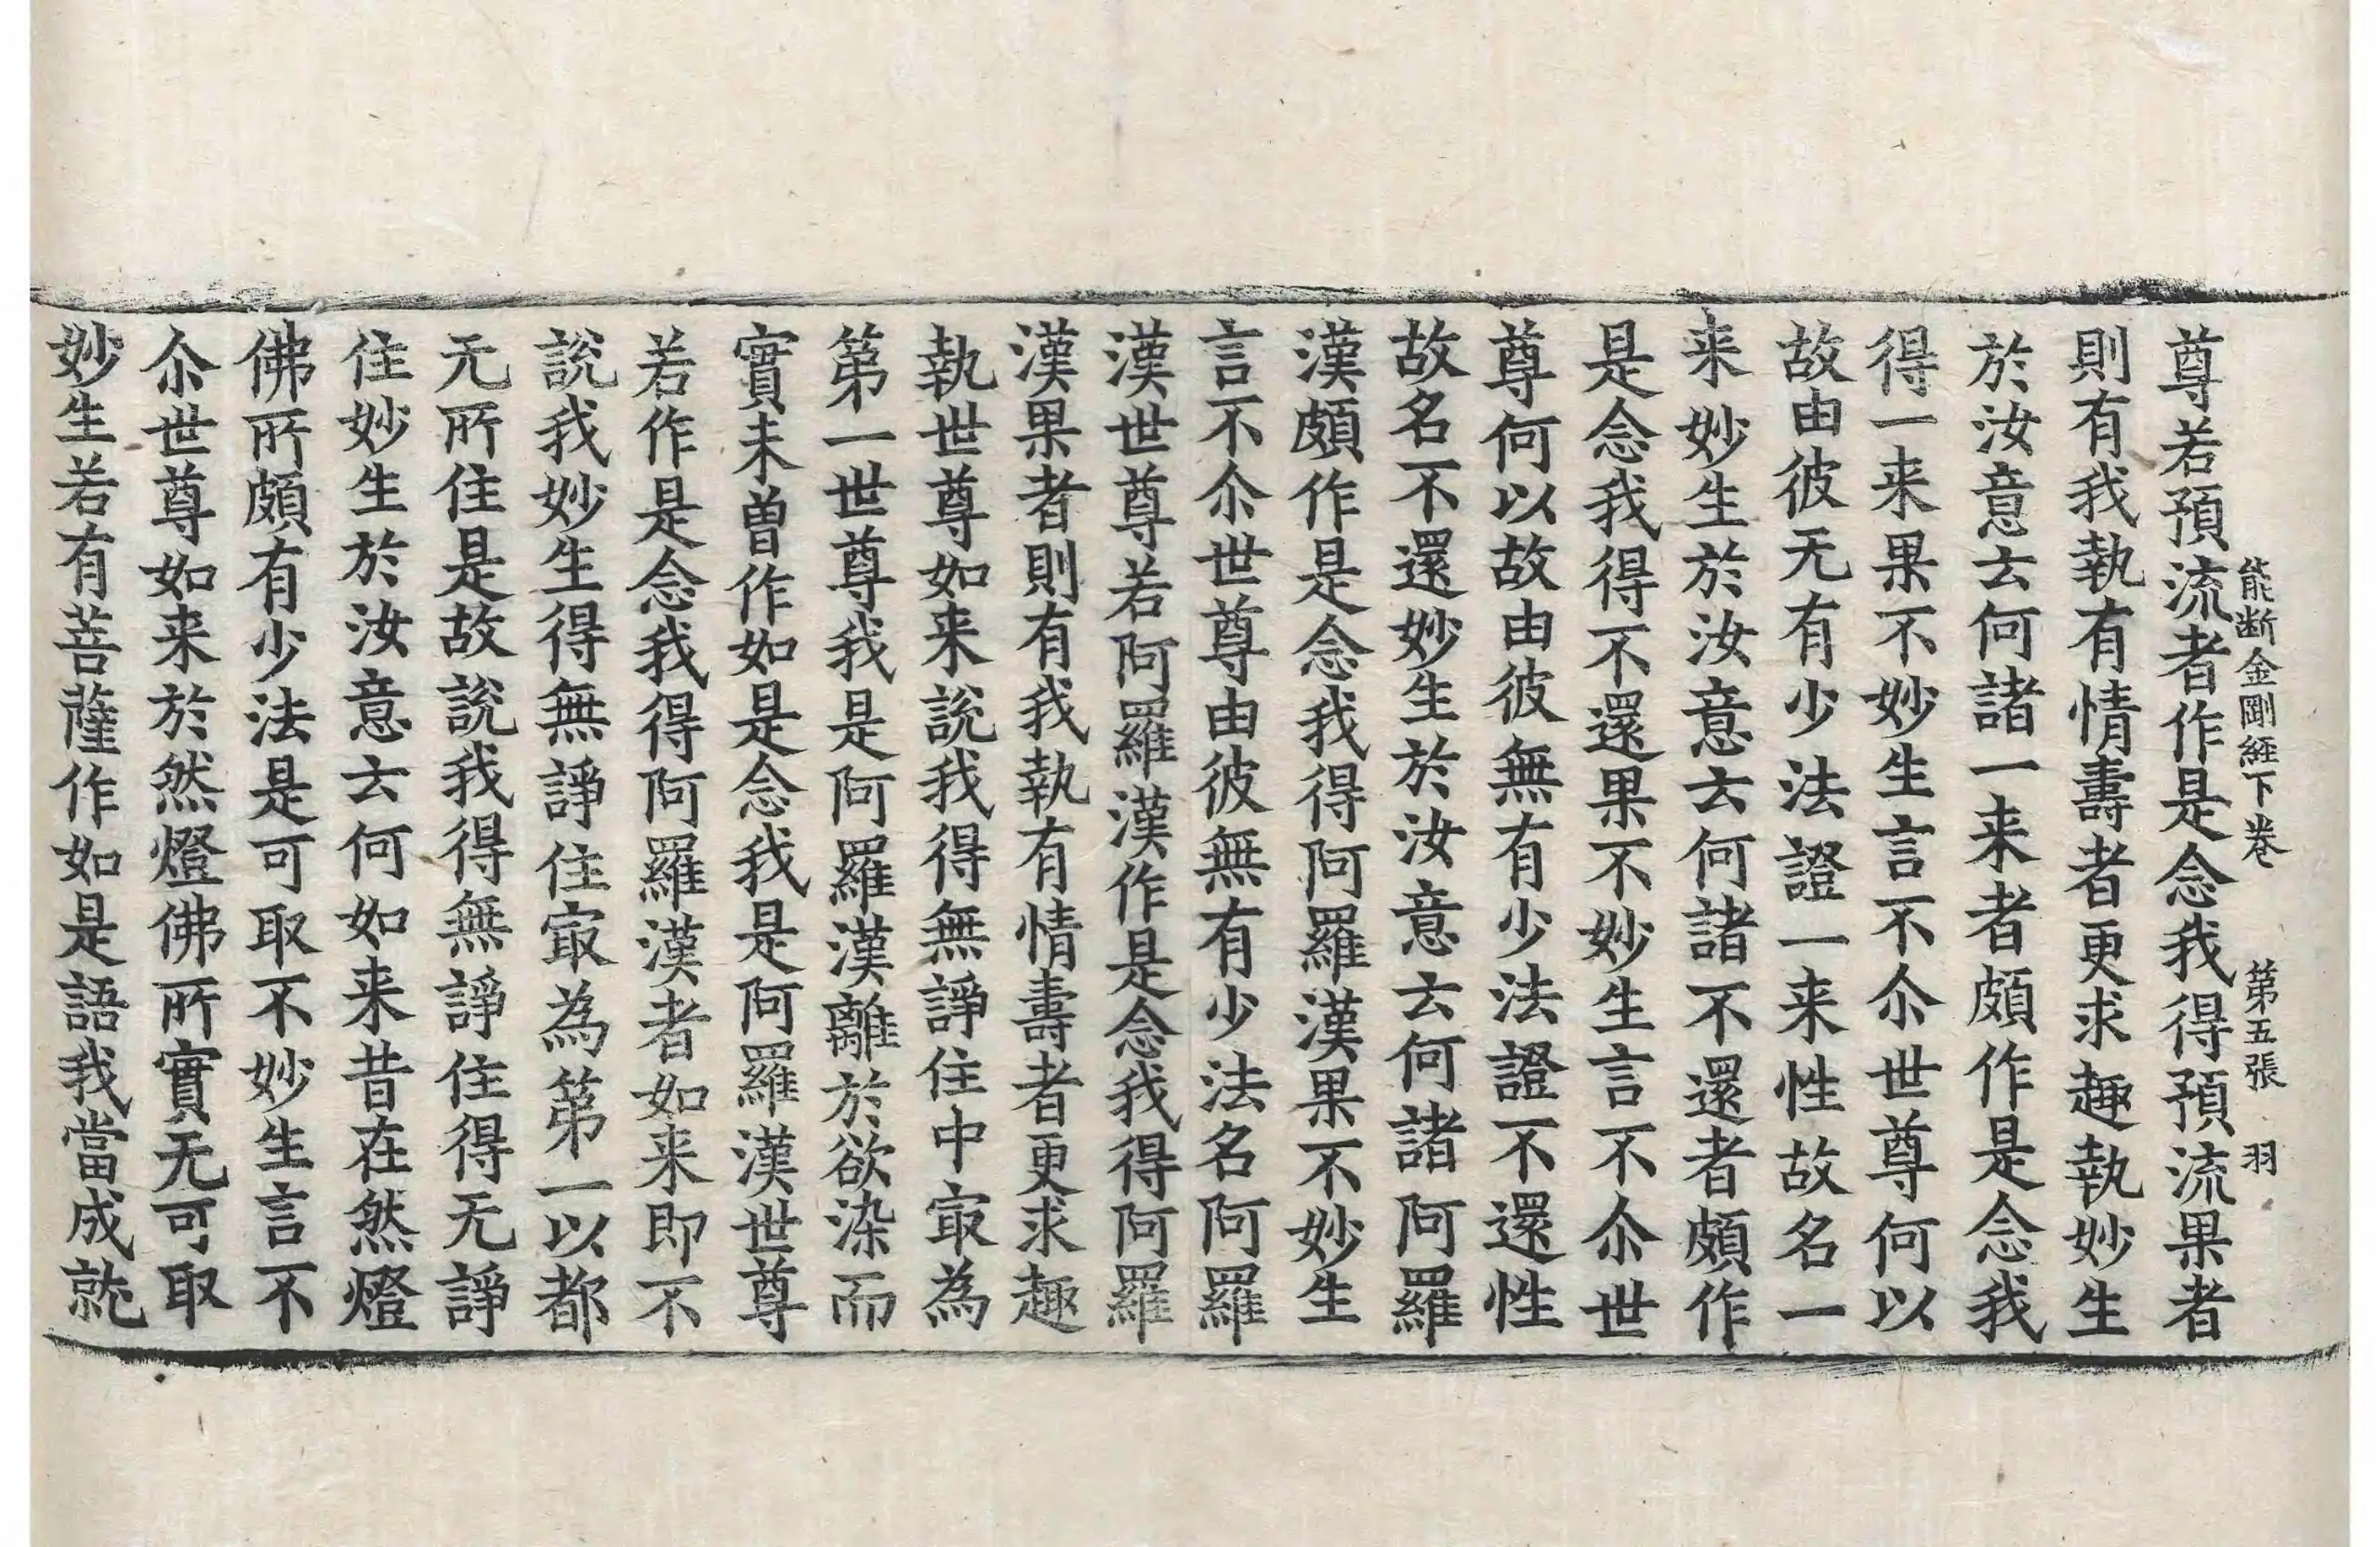 能断金剛經下卷　第五張　羽
尊若預流者作是念我得預流果者
則有我執有情壽者更求趣執妙生
於汝意云何諸一来者頗作是念我
得一来果不妙生言不尒世尊何以
故由彼无有少法證一来性故名一
来妙生於汝意云何諸不還者頗作
是念我得不還果不妙生言不尒世
尊何以故由彼無有少法證不還性
故名不還妙生於汝意云何諸阿羅
漢頗作是念我得阿羅漢果不妙生
言不尒世尊由彼無有少法名阿羅
漢世尊若阿羅漢作是念我得阿羅
漢果者則有我執有情壽者更求趣
執世尊如来說我得無諍住中㝡為
第一世尊我是阿羅漢離於欲染而
實未曾作如是念我是阿羅漢世尊
若作是念我得阿羅漢者如来即不
說我妙生得無諍住㝡為第一以都
无所住是故說我得無諍住得无諍
住妙生於汝意云何如来昔在然燈
佛所頗有少法是可取不妙生言不
尒世尊如来於然燈佛所實无可取
妙生若有菩薩作如是語我當成就